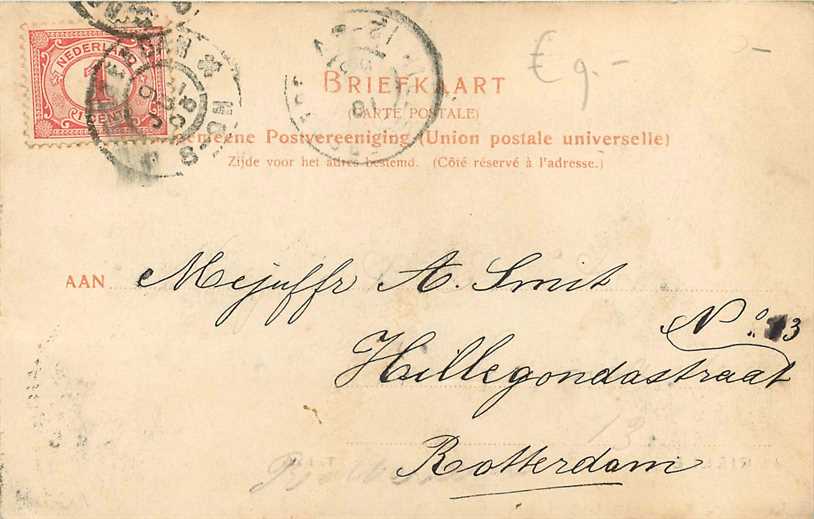 NEDERLAND
1
CENT
€ 9.-
BRIEFKAART
(CARTE POSTALE)
emeene Postvereeniging (Union postale universelle)
Zijde voor het adres bestemd. (Côté réservé à l'adresse.)
AAN Mejuffr A. Smit
No. 13
Hillegondastraat
13
Rotterdam